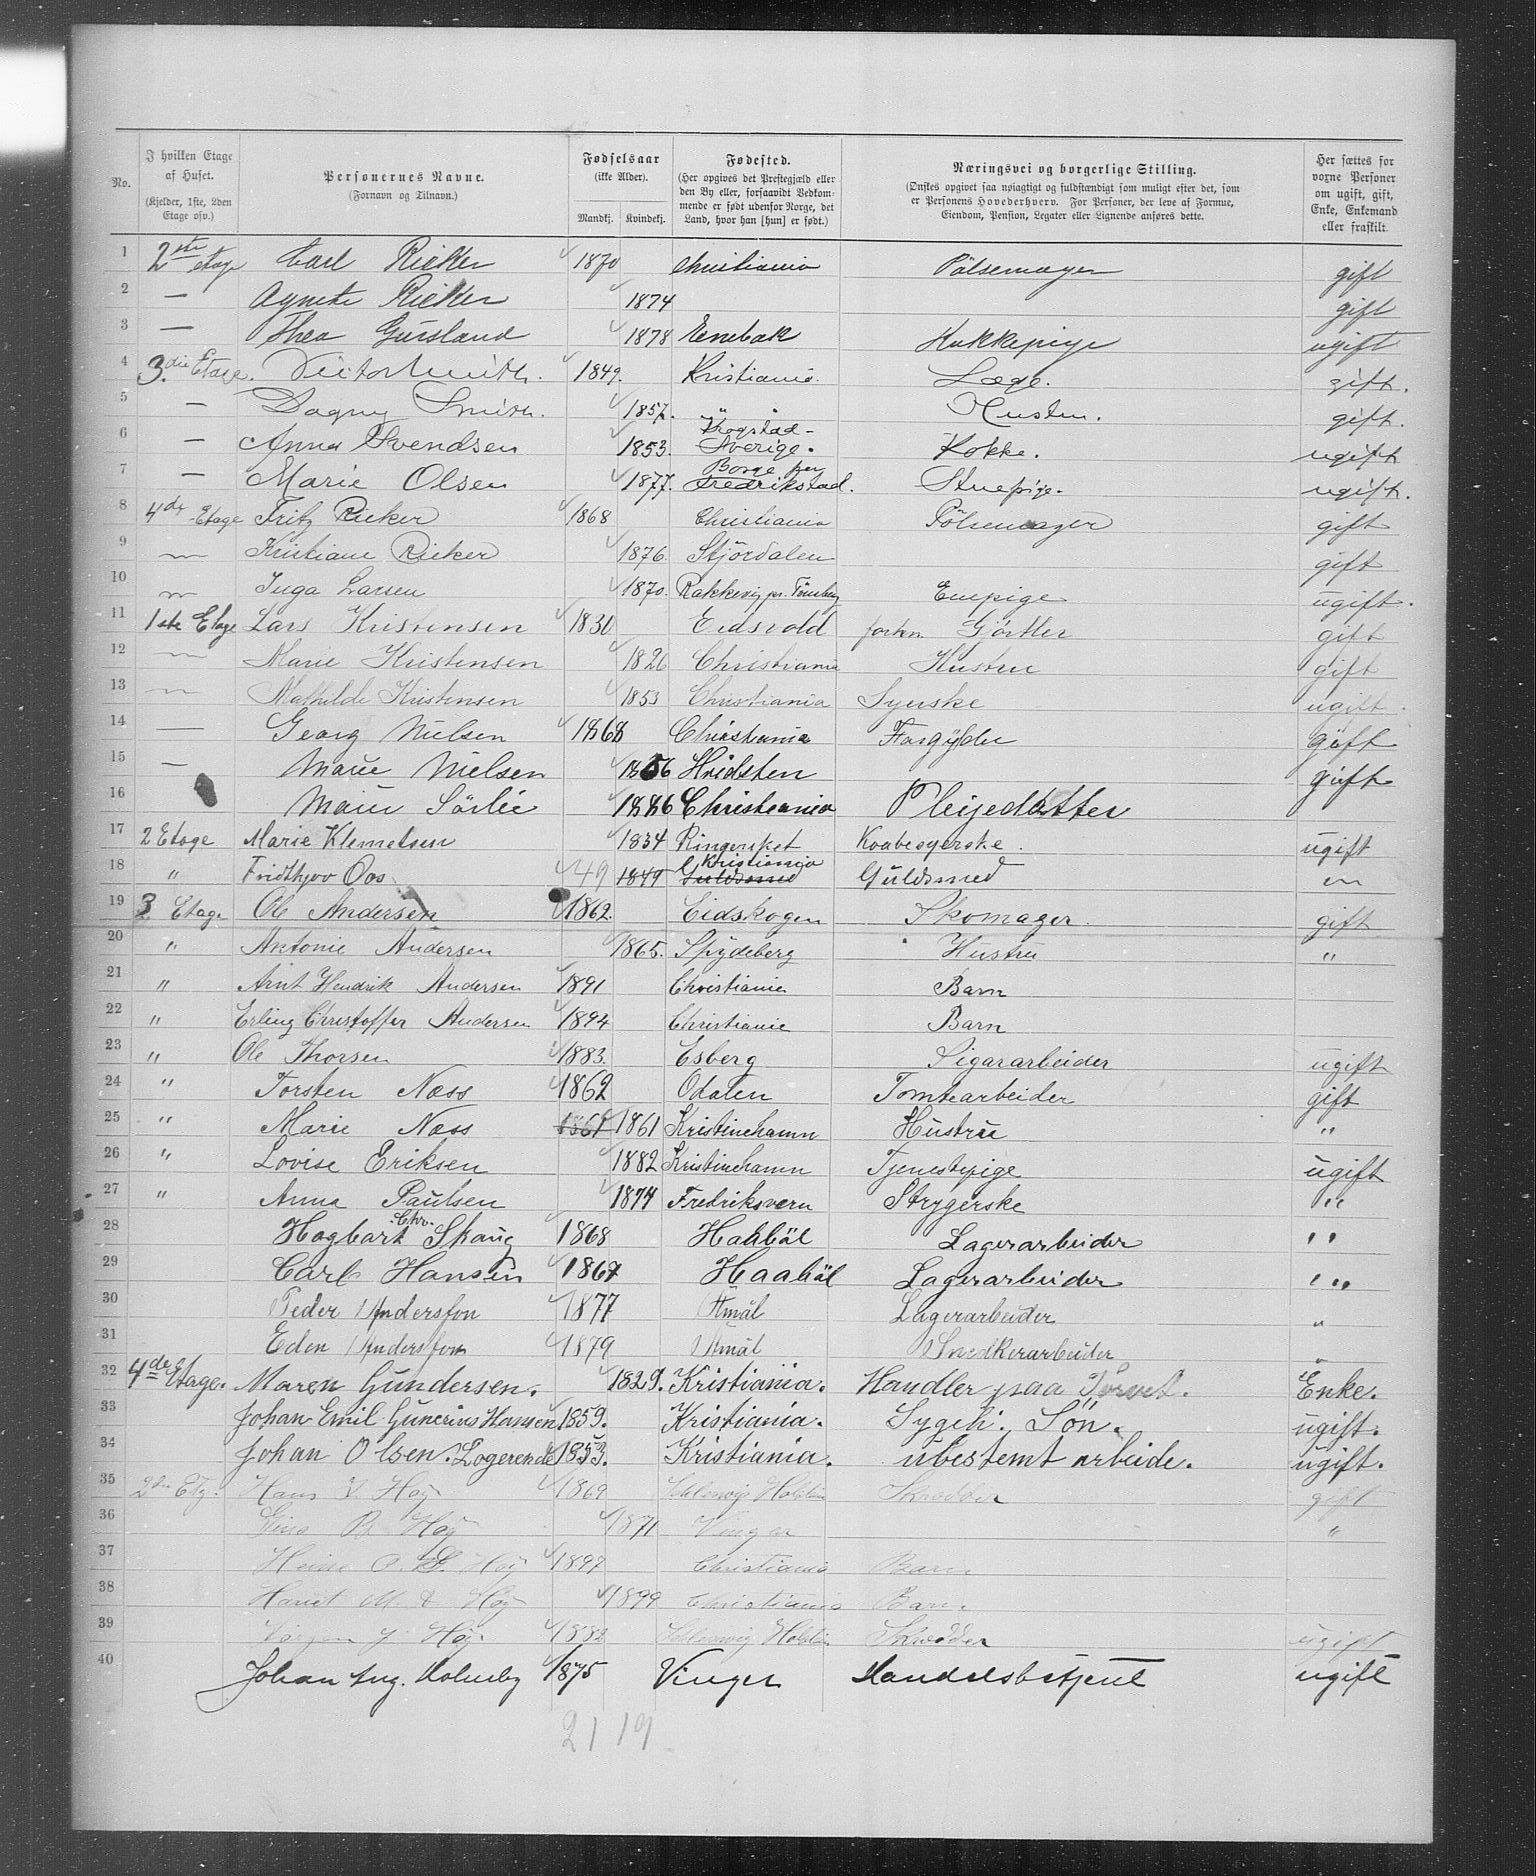 No. | I hvilken Etage af Huset. (Kjelder, 1ste, 2den Etage osv.) | Personernes Navne. (Fornavn og Tilnavn.) | Fødselsaar (ikke Alder). Mandkj. Kvindekj. | Fødested. (Her opgives det Prestegjæld eller den By eller, forsaavidt Vedkommende er født udenfor Norge, det Land, hvor han [hun] er født.) | Næringsvei og borgerlige Stilling. (Ønskes opgivet saa nøiagtigt og fuldstændigt som muligt efter det, som er Personens Hovederhverv. For Personer, der leve af Formue, Eiendom, Pension, Legater eller Lignende anføres dette. | Her sættes for voxne Personer om ugift, gift, Enke, Enkemand eller fraskilt.
1 2den etage Carl Rieker 1870 Christiania Pölsemager gift
2 — Agnete Rieker 1874 gift
3 — Thea 1878 Enebak Kokkepige ugift
4 3die Etage. Victor Smith. 1849. Kristiania. Læge. gift.
5 — Dagny Smith. 1857. " Hustru. gift.
6 — Anna Svendsen 1853. Krogstad - Sverige. Kokke. ugift
7 — Marie Olsen 1877. Borge per Fredrikstad. Stuepige. ugift.
8 4de Etage Fritz Rieker 1868 Christiania Pölsemager gift
9 — Kristiane Rieker 1876. Stjördalen gift
10 — Inga Larsen 1870. Rakkevig pr. Tönsberg Enepige ugift.
11 1ste Etage Lars Kristensen 1830 Eidsvold forhen Gjörtler gift
12 — Marie Kristensen 1826 Christiania Hustru gift
13 — Mathilde Kristensen 1853 Christiania Syerske ugift.
14 — Georg Nielsen 1868 Christiania Forgylder gift
15 — Marie Nielsen 1856 Hvidsten gift
16 Marie Sörlie 1886 Christiania Pleijedatter
17 2 Etage Marie Klemetsen 1834 Ringeriket Kaabesyerske. ugift
18 " Fridthjov Oos 49 1849 Kristiania Guldsmed Guldsmed "
19 3 Etage Ole Andersen 1862. Eidskogen Skomager gift
20 " Antonie Andersen 1865. Spydeberg Hustru "
21 " Arnt Hendrik Andersen 1891 Christiania Barn
22 " Erling Christoffer Andersen 1894 Christiania Barn
23 " Ole Thorsen 1883. Esberg Sigararbeider ugift
24 " Torsten Næss 1862 Odalen Tomtearbeider gift
25 " Marie Næss 1861 1861 Kristinehamn Hustru "
26 " Lovise Eriksen 1882 Kristinehamn Tjenestepige ugift
27 " Anna Paulsen 1874 Fredriksværn Strygerske "
28 Hagbart Chr. Skaug 1868 Haabøl Lagerarbeider "
29 Carl Hansen 1867 Haabøl Lagerarbeider "
30 Peder Andersson 1877 Åmål Lagerarbeider "
31 Eden Andersson 1879 Åmål Snedkerarbeider "
32 4de Etage. Maren Gundersen. 1829. Kristiania. Handler paa Torvet. Enke.
33 Johan Emil Gunerius Hansen 1859. Kristiania. Sygeli. Søn. ugift.
34 Johan Olsen. Logerende 1853. Kristiania. ubestemt arbeide. ugift.
35 2den Etg. Hans Høy 1869 Schlesvig Holstein Skrædder gift
36 Høy 1871 Vinger "
37 Høy 1897 Christiania Barn.
38 Høy 1899 Christiania Barn.
39 Jørgen Høy 1882 Schlesvig Holstein Skrædder ugift
40 Johan Aug. Holmby 1875 Vinger Handelsbetjent ugift
21 19